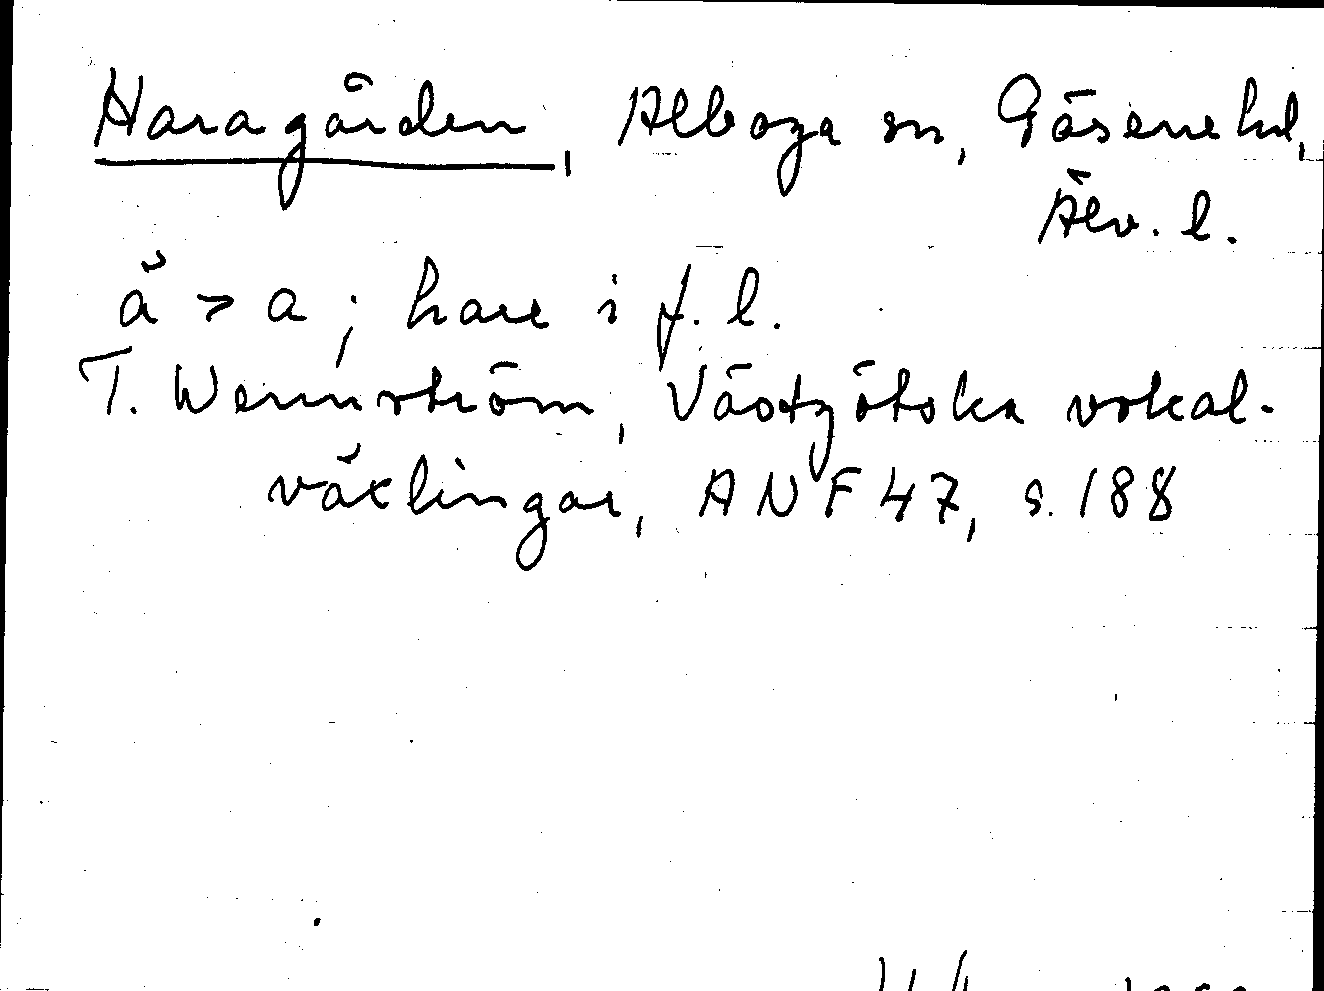 Haragården, Alboga sn, Gäsene hd,
Älv. l.
ă > a; hare i f. l.
T. Wennström, Västgötska vokal-
växlingar, ANF 47, s. 188